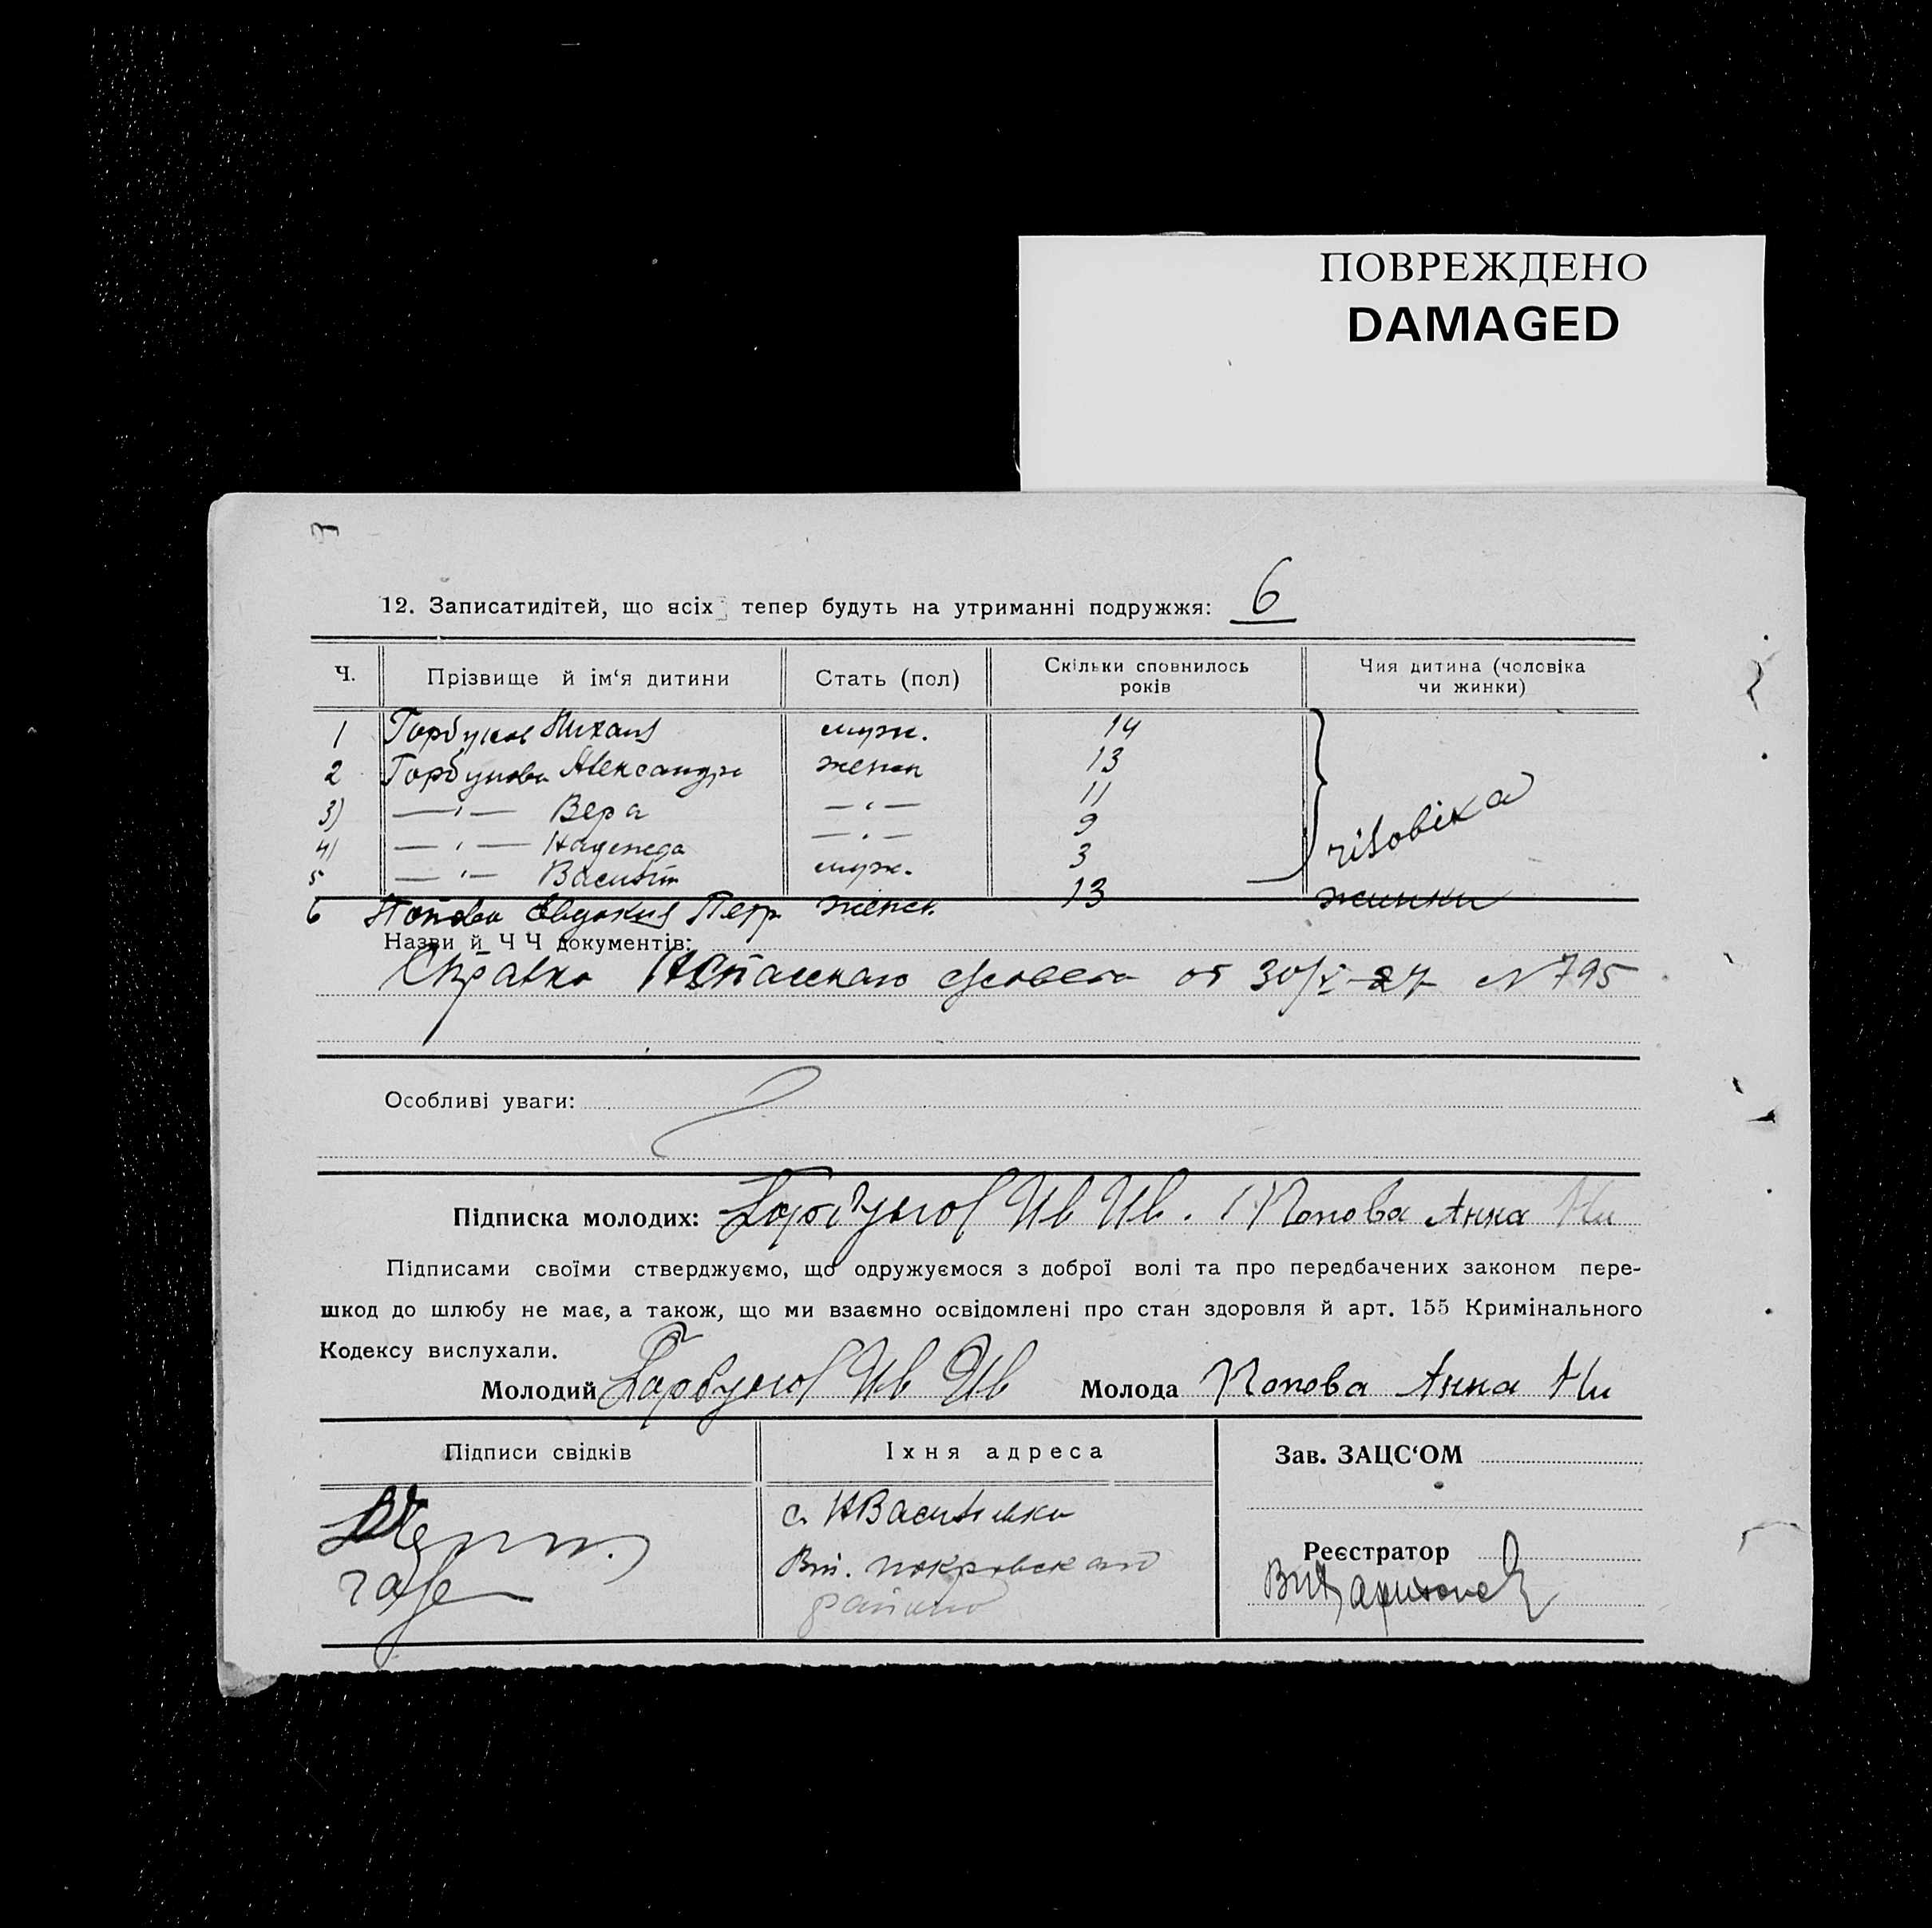 ПОВРЕЖДЕНО
DAMAGED
12. Записатидітей, що всіх тепер будуть на утриманні подружжя: 6
Ч. Прізвище й ім'я дитини Стать (пол) Скільки сповнилось років Чия дитина (чоловіка чи жинки)
1 Горбунов Михаил муж. 14
2 Горбунова Александра женск 13
3) —"— Вера —"— 11
4) —"— Надежда —"— 9
5 —"— Василий муж. 3
чоловіка
6 Попова Евдокия Петр женск. 13 жинки
Назви й Ч Ч документів:
Справка сельсовета от 30/X-27 N 795
Особливі уваги:
Підписка молодих: Горбунов Ив Ив. Попова Анна Ни
Підписами своїми стверджуємо, що одружуємося з доброї волі та про передбачених законом пере-
шкод до шлюбу не має, а також, що ми взаємно освідомлені про стан здоровля й арт. 155 Кримінального
Кодексу вислухали.
Молодий Горбунов Ив Ив Молода Попова Анна Ни
Підписи свідків Їхня адреса Зав. ЗАЦС'ОМ
с. НВасильевка
покровского
района
Реєстратор